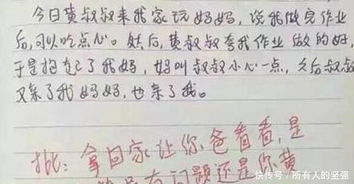 今日黄叔叔来我家玩妈妈，说我做完作业
后，可以吃点心。然后，黄叔叔夸我作业做的好，
于是抱起了我妈，妈叫叔叔小心一点，之后叔叔
又亲了我妈妈，也亲了我。
批：拿回家让你爸看看，是
有问题还是你黄
快传号/所有人的坚强